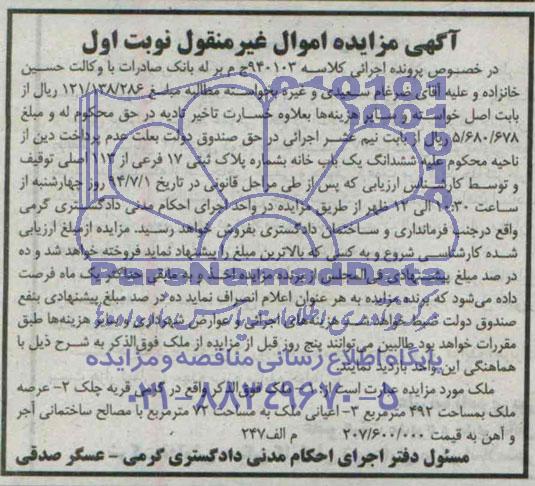 آگهی مزایده اموال غیرمنقول نوبت اول
در خصوص پرونده اجرائی کلاسه ۹۴۰۱۰۳ج م بر له بانک صادرات با وکالت حسین
خانزاده و علیه آقای ضرغام سعیدی و غیره بخواسته مطالبه مبلغ ۱۲۱/۱۳۸/۲۸۶ ریال از
بابت اصل خواسته و سایر هزینه‌ها بعلاوه خسارت تاخیر تادیه در حق محکوم له و مبلغ
۵/۶۸۰/۶۷۸ ریال از بابت نیم عشر اجرائی در حق صندوق دولت بعلت عدم پرداخت دین از
ناحیه محکوم علیه ششدانگ یک باب خانه بشماره پلاک ثبتی ۱۷ فرعی از ۱۱۳ اصلی توقیف
و توسط کارشناس ارزیابی که پس از طی مراحل قانونی در تاریخ ۹۴/۷/۱ روز چهارشنبه از
ساعت ۱۰:۳۰ الی ۱۲ ظهر از طریق مزایده در واحد اجرای احکام مدنی دادگستری گرمی
واقع درجنب فرمانداری و ساختمان دادگستری بفروش خواهد رسید. مزایده ازمبلغ ارزیابی
شده کارشناسی شروع و به کسی که بالاترین مبلغ را پیشنهاد نماید فروخته خواهد شد و ده
در صد مبلغ پیشنهادی فی المجلس از برنده مزایده اخذ و به مابقی حداکثر یک ماه فرصت
داده می‌شود که برنده مزایده به هر عنوان اعلام انصراف نماید ده در صد مبلغ پیشنهادی بنفع
صندوق دولت ضبط خواهد شد. هزینه های اجرائی و عوارض شهرداری و سایر هزینه‌ها طبق
مقررات خواهد بود طالبین می‌توانند پنج روز قبل از مزایده از ملک فوق‌الذکر به شرح ذیل با
هماهنگی این واحد بازدید نمایند.
ملک مورد مزایده عبارت است از: ۱- ملک فوق‌الذکر واقع در گرمی قریه چلک ۲- عرصه
ملک بمساحت ۴۹۲ مترمربع ۳- اعیانی ملک به مساحت ۷۲ مترمربع با مصالح ساختمانی آجر
و آهن به قیمت ۲۰۷/۶۰۰/۰۰۰ م الف۲۴۷
مسئول دفتر اجرای احکام مدنی دادگستری گرمی - عسگر صدقی
ParsNamadData
پایگاه اطلاع رسانی مناقصه و مزایده
۰۲۱-۸۸۳۴۹۶۷۰-۵